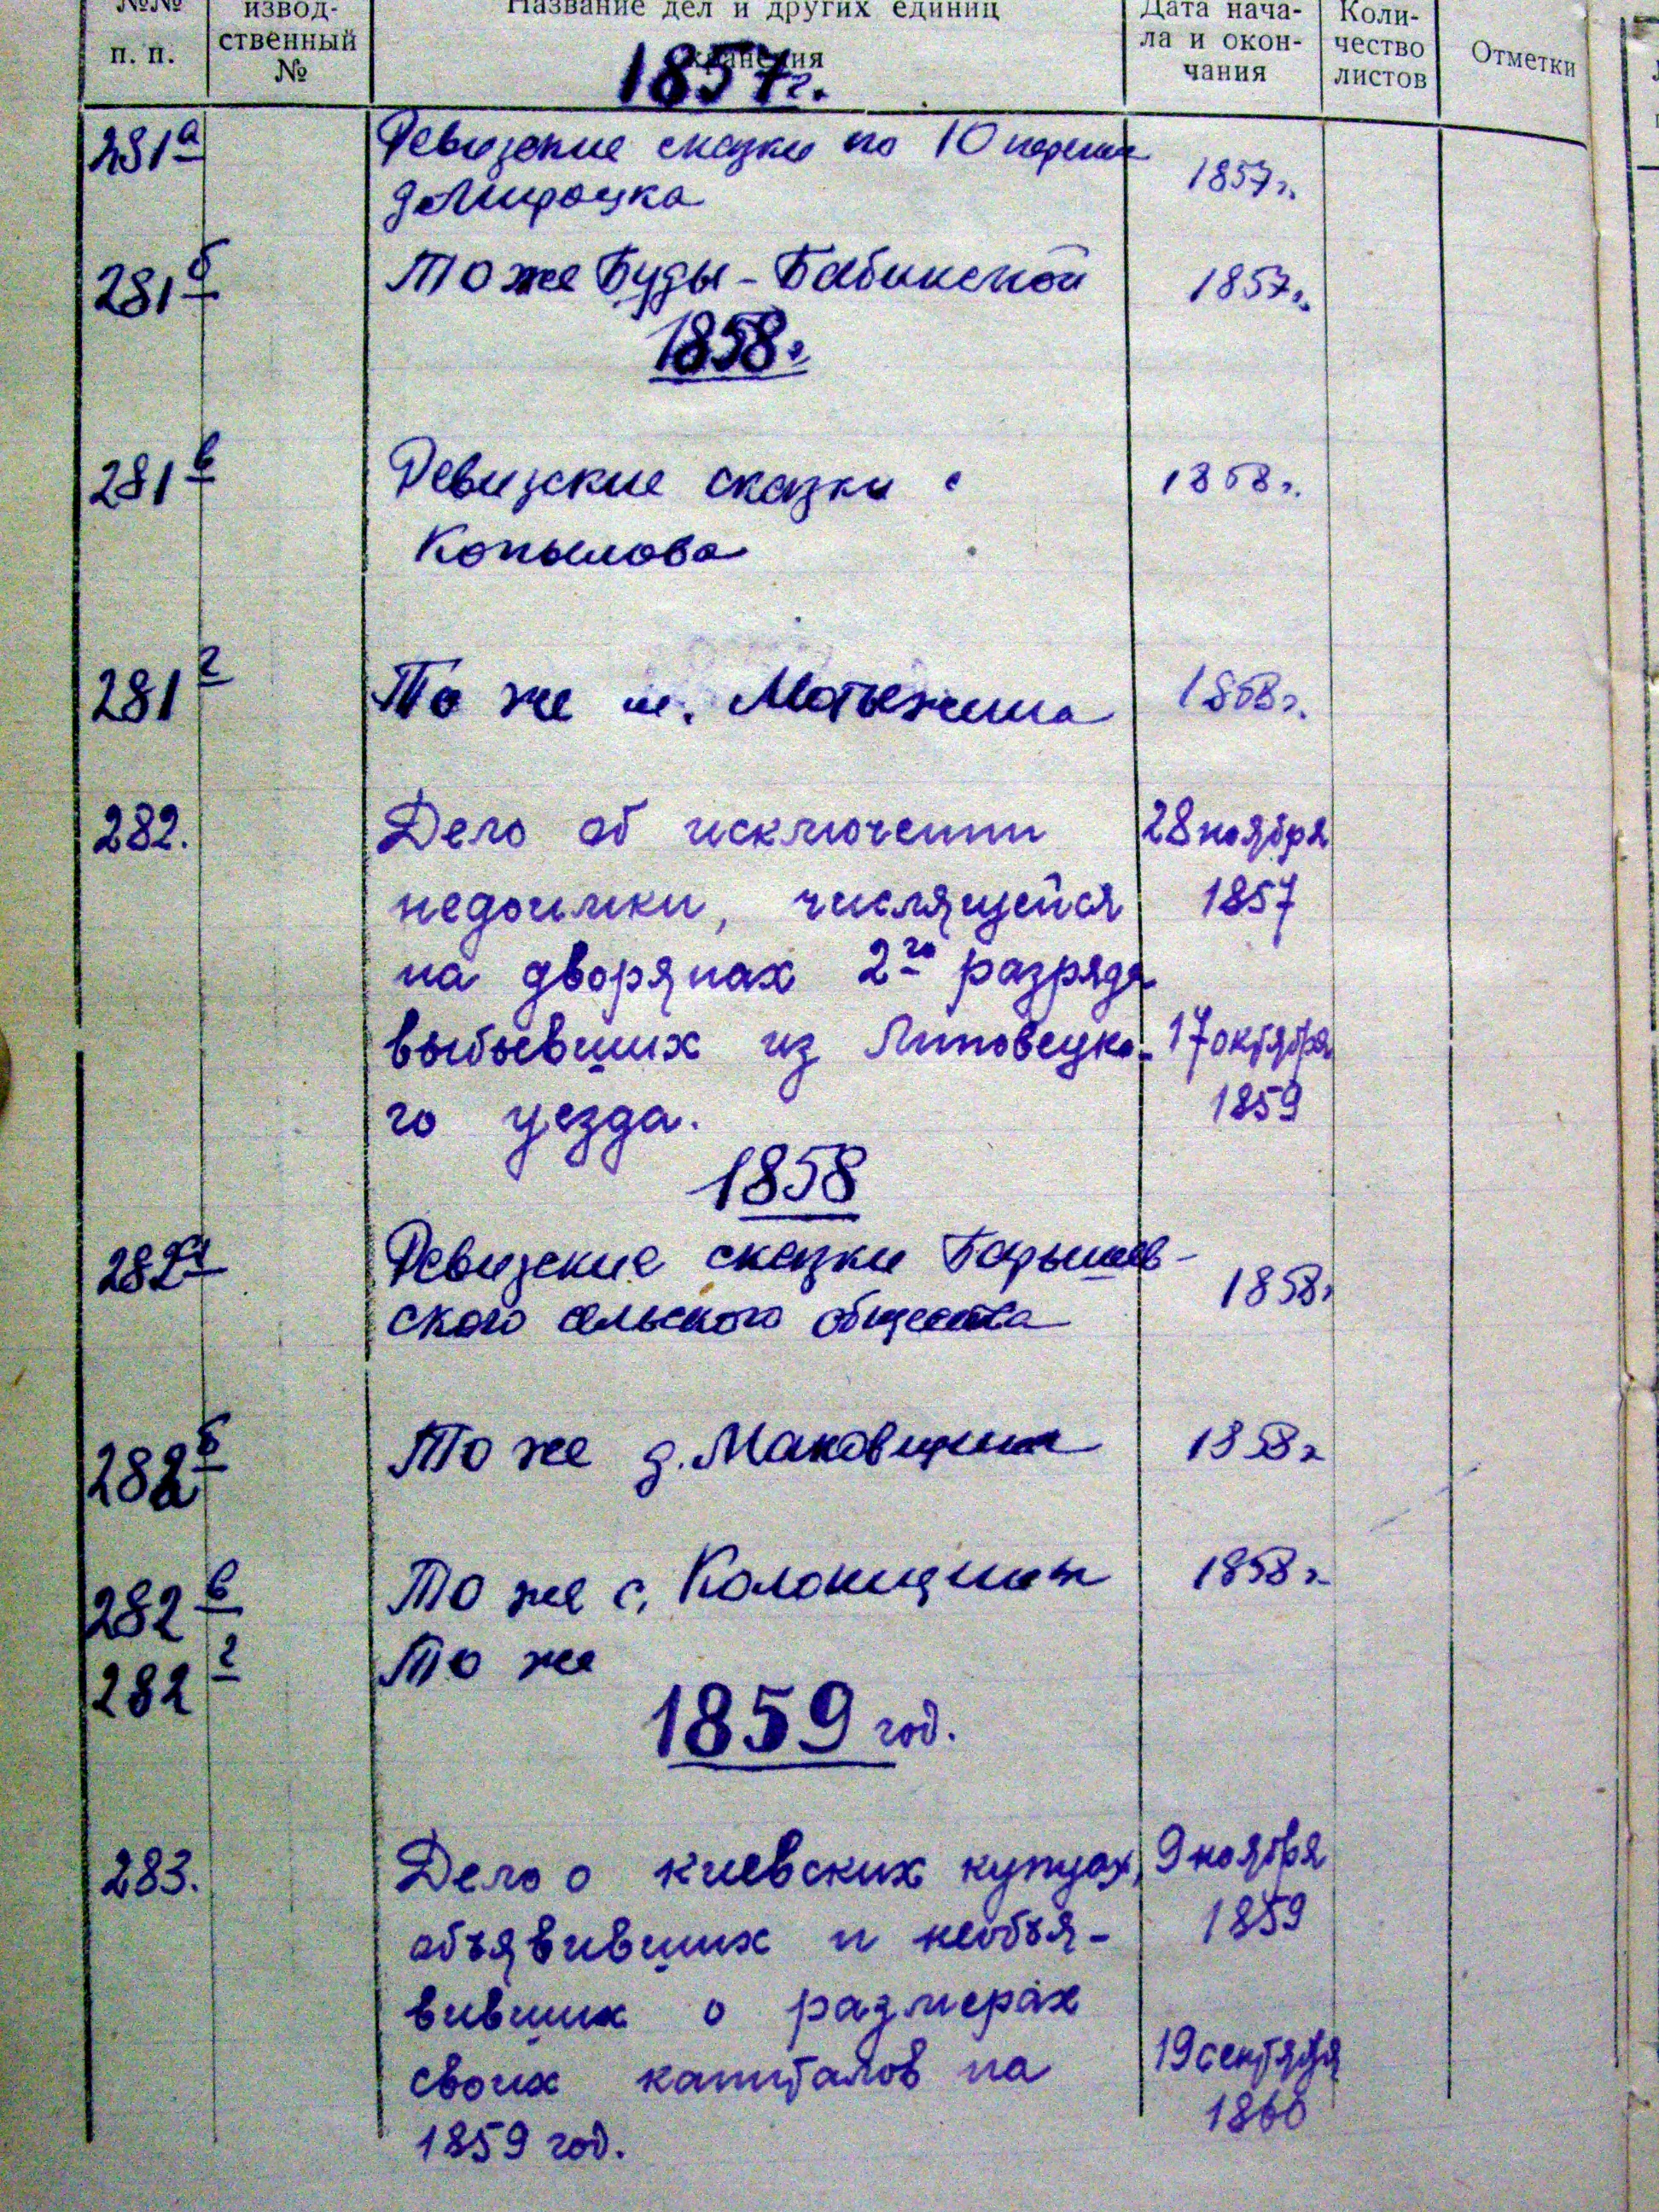 №№ п. п.
извод-
ственный
№
Название дел и других единиц
хранения
Дата нача-
ла и окон-
чания
Коли-
чество
листов
Отметки
1857г.
281а Ревизские сказки по 10 переписи 1857г.
д Мироцка
281б То же Буды-Бабинской 1857г.
1858г.
281в Ревизские сказки с 1858г.
Копылова
281г То же м. Мотыжина 1858г.
282. Дело об исключении 28 ноября
недоимки, числящейся 1857
на дворянах 2го разряда
выбывших из Липовецко- 17 октября
го уезда. 1859
1858
282а Ревизские сказки Барышев-
ского сельского общества 1858г
282б То же д. Маковищи 1858г
282в То же с. Колонщины 1858г
282г То же
1859 год.
283. Дело о киевских купцах, 9 ноября
объявивших и необъя- 1859
вивших о размерах
своих капиталов на 19 сентября
1859 год. 1860